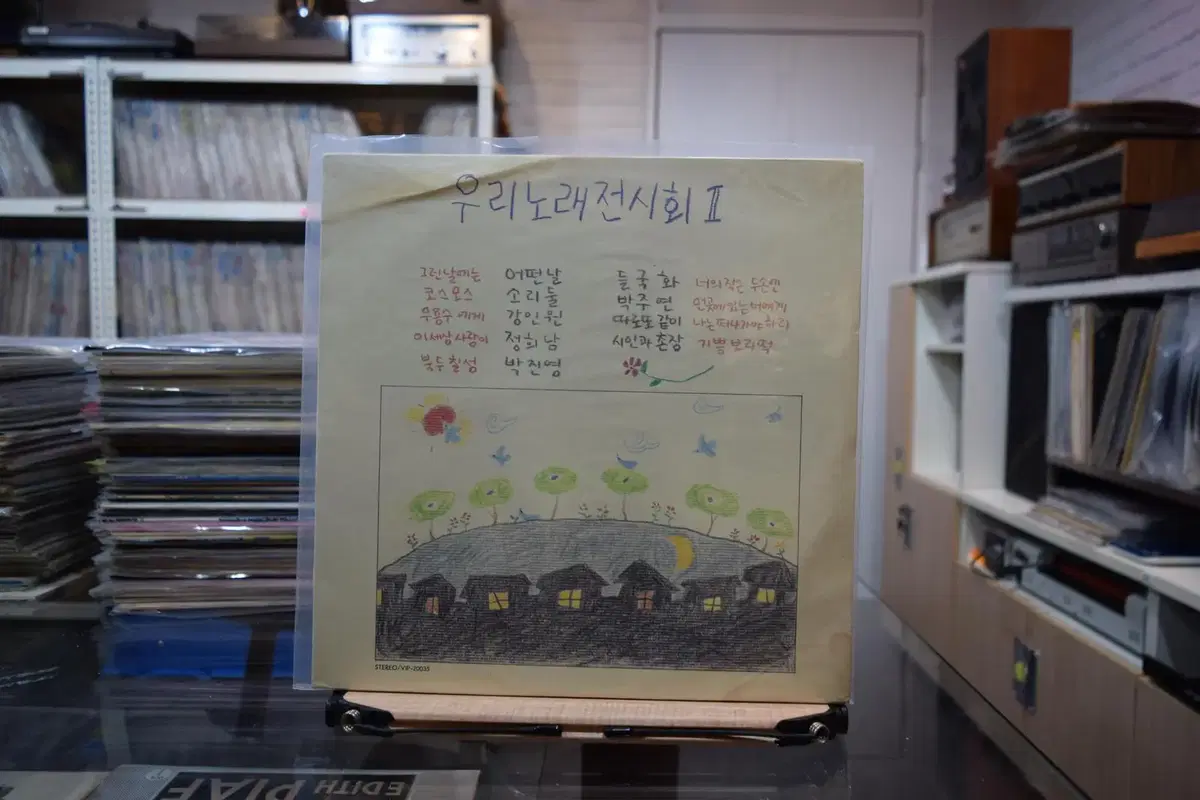 우리노래전시회 II
그런날에는 어떤날
코스모스 소리둘
무용수에게 강인원
이세상사람이 정희남
북두칠성 박진영
들국화 너의작은두손엔
박주연 먼곳에있는너에게
따로또같이 나는떠나가야하리
시인과촌장 기쁨보리떡
STEREO/VIP-20033
EDITH PIAF